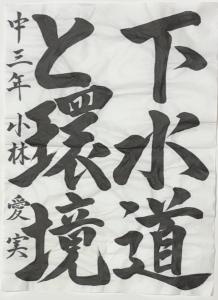 下水道
と環境
中三年 小林 愛実